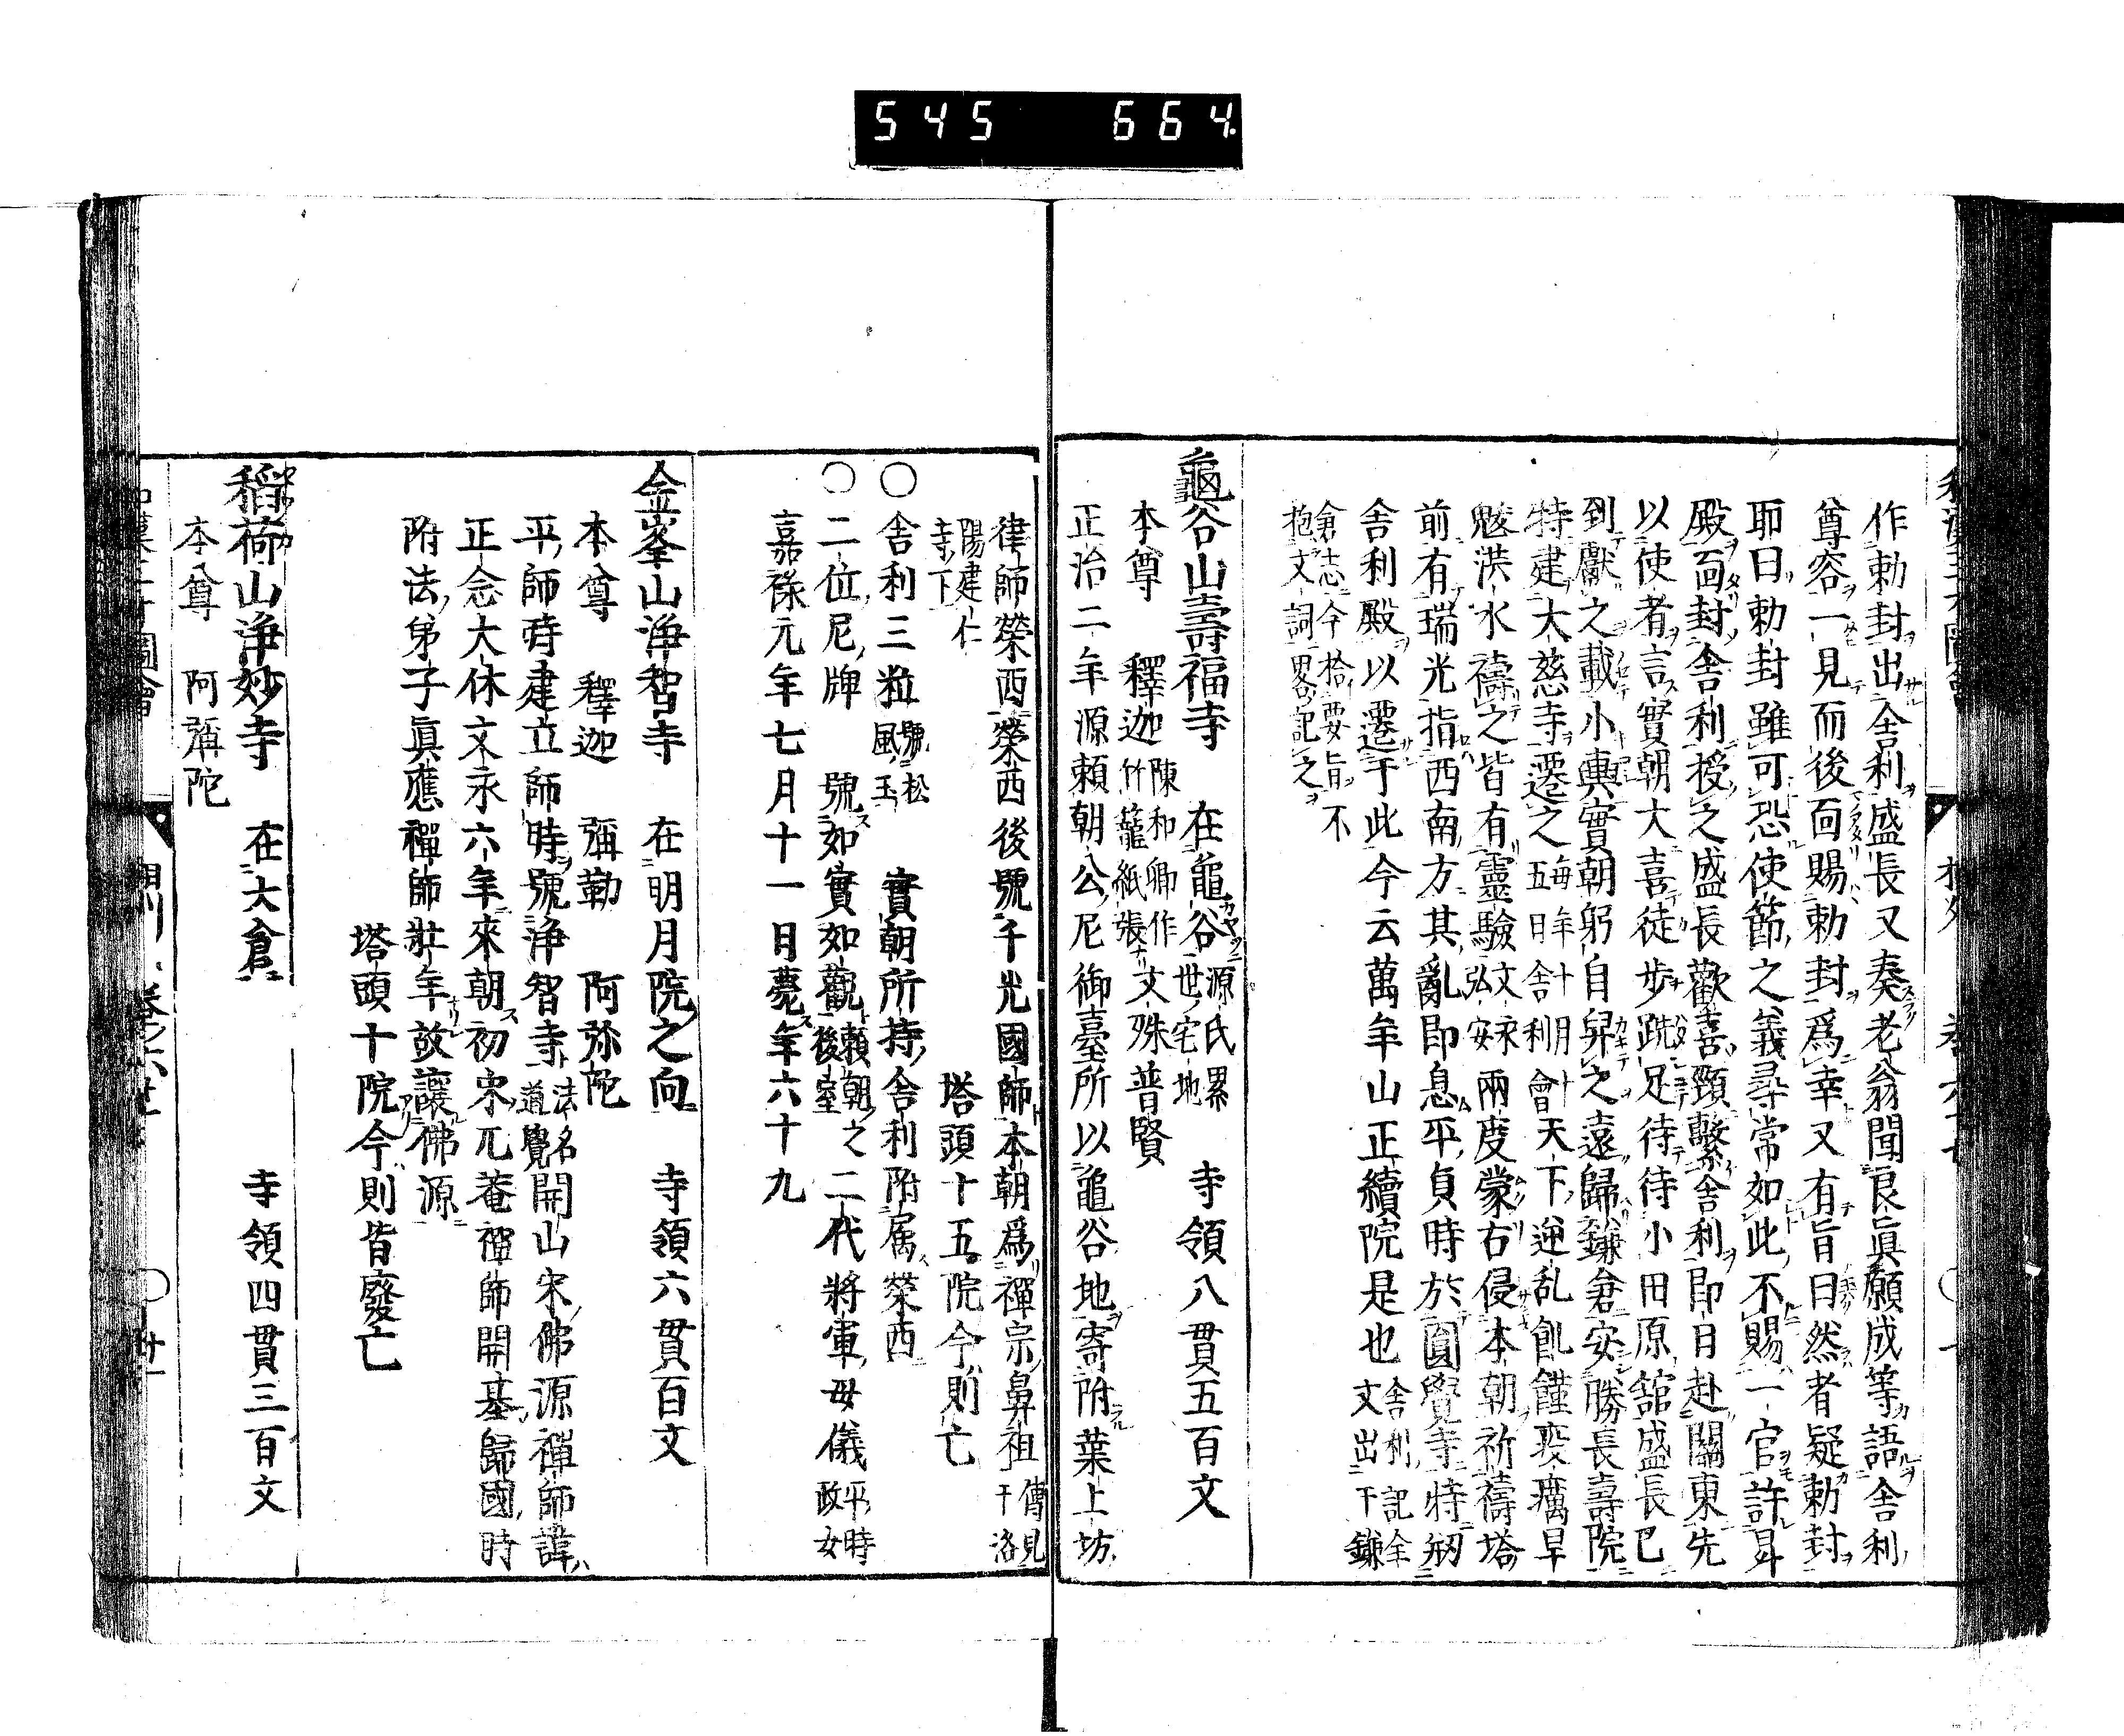 545 664
作勅封出舎利盛長又奏老翁聞良眞願成等語舎利
尊容一見而後向賜勅封爲幸又有旨曰然者疑勅封
耶曰勅封雖可恐使節之義尋常如此不賜一官許昇
殿面封舎利授之盛長歡喜頸繫舎利即日赴關東先
以使者言實朝大喜徒歩跣足待待小田原舘盛長已
到獻之載小輿實朝躬自舁之遠歸鎌倉安勝長壽院
特建大慈寺遷之毎年十月十五日舎利會天下逆乱飢饉疫癘旱
魃洪水禱之皆有靈驗文永弘安兩度蒙古侵本朝祈禱塔
前有瑞光指西南方其亂即息平貞時於圓覺寺特剏
舎利殿以遷于此今云萬年山正續院是也舎利記全文出下鎌
倉志今拾要旨不抱文詞畧記之
龜谷山壽福寺 在龜谷源氏累世宅地 寺領八貫五百文
本尊 釋迦陳和卿作竹籠紙張 文殊普賢
正治二年源頼朝公尼御臺所以龜谷地寄附葉上坊
律師榮西榮西後號千光國師本朝爲禪宗鼻祖傳見于洛
陽建仁寺下 塔頭十五院今則亡
〇舎利三粒號松風玉 實朝所持舎利附属榮西
〇二位尼牌 號如實如觀頼朝之後室二代將軍母儀平時政女
嘉禄元年七月十一日薨年六十九
金峯山浄智寺 在明月院之向 寺領六貫百文
本尊 釋迦 彌勒 阿弥陀
平師時建立師時號浄智寺法名道覺開山宋佛源禪師諱
正念大休文永六年來朝初宋兀菴禪師開基歸國時
附法弟子眞應禪師壯年故讓佛源
塔頭十院今則皆廢亡
稻荷山浄妙寺 在大倉 寺領四貫三百文
本尊 阿彌陀